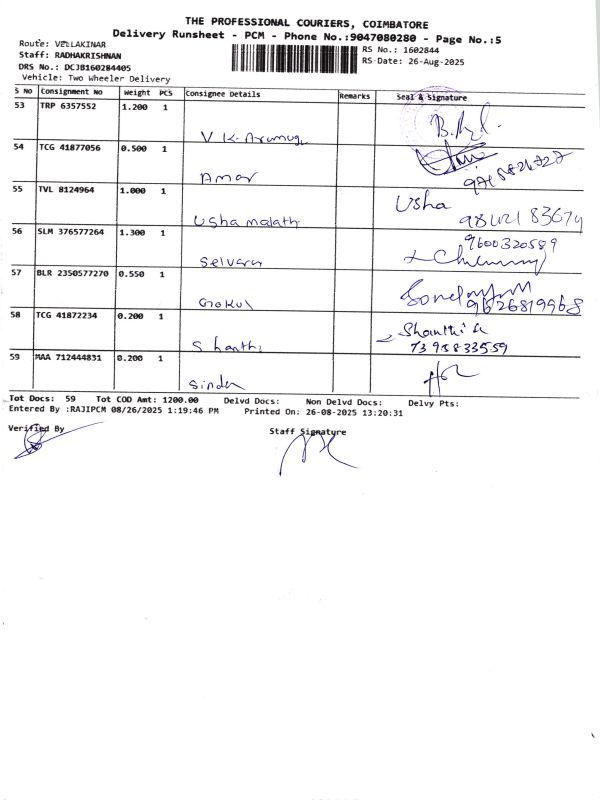 THE PROFESSIONAL COURIERS, COIMBATORE
Delivery Runsheet - PCM - Phone No.:9047080280 - Page No.:5
Route: VELLAKINAR
Staff: RADHAKRISHNAN
DRS No.: DCJB160284405
Vehicle: Two Wheeler Delivery
RS No.: 1602844
RS-Date: 26-Aug-2025
S No Consignment No Weight PCS Consignee Details Remarks Seal & Signature
53 TRP 6357552 1.200 1
V K. Arumug
54 TCG 41877056 0.500 1
Amar
55 TVL 8124964 1.000 1 Usha
Usha malathi
56 SLM 376577264 1.300 1 9600320589
Selvaraj
57 BLR 2350577270 0.550 1
Gokul 9626819968
58 TCG 41872234 0.200 1 Shanthi
Shanthi
59 MAA 712444831 0.200 1
Sindhu
Tot Docs: 59 Tot COD Amt: 1200.00 Delvd Docs: Non Delvd Docs: Delvy Pts:
Entered By :RAJIPCM 08/26/2025 1:19:46 PM Printed On: 26-08-2025 13:20:31
Verified By Staff Signature